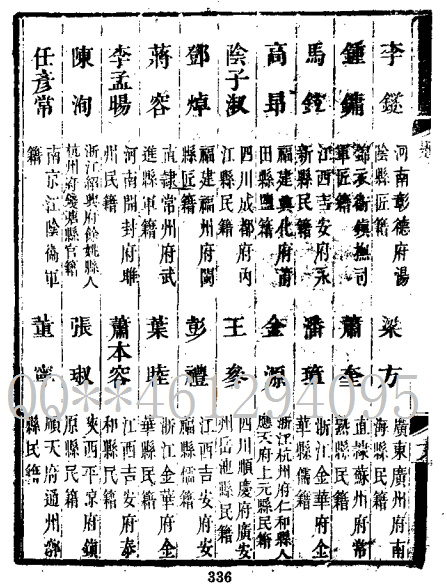 李鐩
河南彰德府湯
陰縣匠籍
梁方
廣東廣州府南
海縣民籍
鍾鏞
錦衣衛鎮撫司
軍匠籍
蕭奎
直隸蘇州府常
熟縣民籍
馬
江西吉安府永
新縣民籍
潘璋
浙江金華府金
華縣儒籍
高昻
福建興化府莆
田縣鹽籍
金源
浙江杭州府仁和縣人
應天府上元縣民籍
陰子淑
四川成都府內
江縣民籍
王參
四川順慶府廣安
州岳池縣民籍
鄧焯
福建福州府閩
縣匠籍
彭禮
江西吉安府安
福縣儒籍
蔣容
直隸常州府武
進縣軍籍
葉睦
浙江金華府金
華縣民籍
李孟暘
河南開封府睢
州民籍
蕭本容
江西吉安府泰
和縣民籍
陳洵
浙江紹興府餘姚縣人
杭州府錢塘縣官籍
張淑
陝西平涼府鎮
原縣民籍
任彥常
南京江陰衛軍
籍
董寧
順天府通州漷
縣民籍
QQ**461294095
336